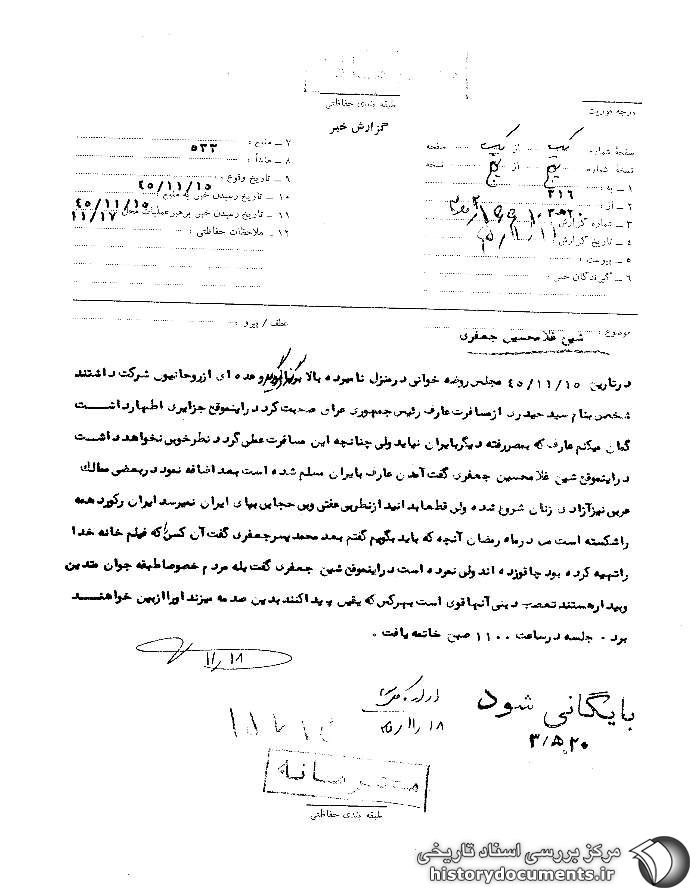 طبقه بندی حفاظتی
گزارش خبر
درجه فوریت
صفحهٔ شماره یک از یک صفحه
نسخهٔ شماره از نسخه
۱ ـ به : ۳۱۶
۲ ـ از :
۳ ـ شماره گزارش :
۴ ـ تاریخ گزارش :
۵ ـ پیوست :
۶ ـ گیرندگان خبر :
۷ ـ منبع : ۵۳۳
۸ ـ منشأ :
۹ ـ تاریخ وقوع : ۴۵/۱۱/۱۵
۱۰ ـ تاریخ رسیدن خبر به منبع : ۴۵/۱۱/۱۵
۱۱ ـ تاریخ رسیدن خبر برهبر عملیات محل ۱۱/۱۷
۱۲ ـ ملاحظات حفاظتی :
موضوع : شیخ غلامحسین جعفری
عطف / پیرو :
در تاریخ ۴۵/۱۱/۱۵ مجلس روضه خوانی در منزل نامبرده بالا برگزار گردید و عده ای از روحانیون شرکت داشتند
شخصی بنام سید حیدری از مسافرت عارف رئیس جمهوری عراق صحبت کرد در اینموقع جزایری اظهار داشت
گمان میکنم عارف که بمصر رفته دیگر بایران نیاید ولی چنانچه این مسافرت عملی گردد نظر خوبی نخواهد داشت
در اینموقع شیخ غلامحسین جعفری گفت آمدن عارف بایران مسلم شده است بعد اضافه نمود در بعضی ممالک
عربی نیز آزادی زنان شروع شده ولی قطعا بدانید از نظر بی عفتی و بی حجابی بپای ایران نمیرسد ایران رکورد همه
را شکسته است من در ماه رمضان آنچه که باید بگویم گفتم بعد محمد پسر جعفری گفت آن کسی را که فیلم خانه خدا
را تهیه کرده بود چاقو زده اند ولی نمرده است در اینموقع شیخ جعفری گفت بله مردم خصوصا طبقه جوان متدین
و بیدار هستند تعصب دینی آنها قوی است بهرکس که یقین پیدا کنند بدین صدمه میزند او را از بین خواهند
برد . جلسه در ساعت ۱۱۰۰ صبح خاتمه یافت .
۱۱/۱۸
۴۵/۱۱/۱۸
بایگانی شود
۳/۵۲۰
محرمانه
طبقه بندی حفاظتی
مرکز بررسی اسناد تاریخی
historydocuments.ir